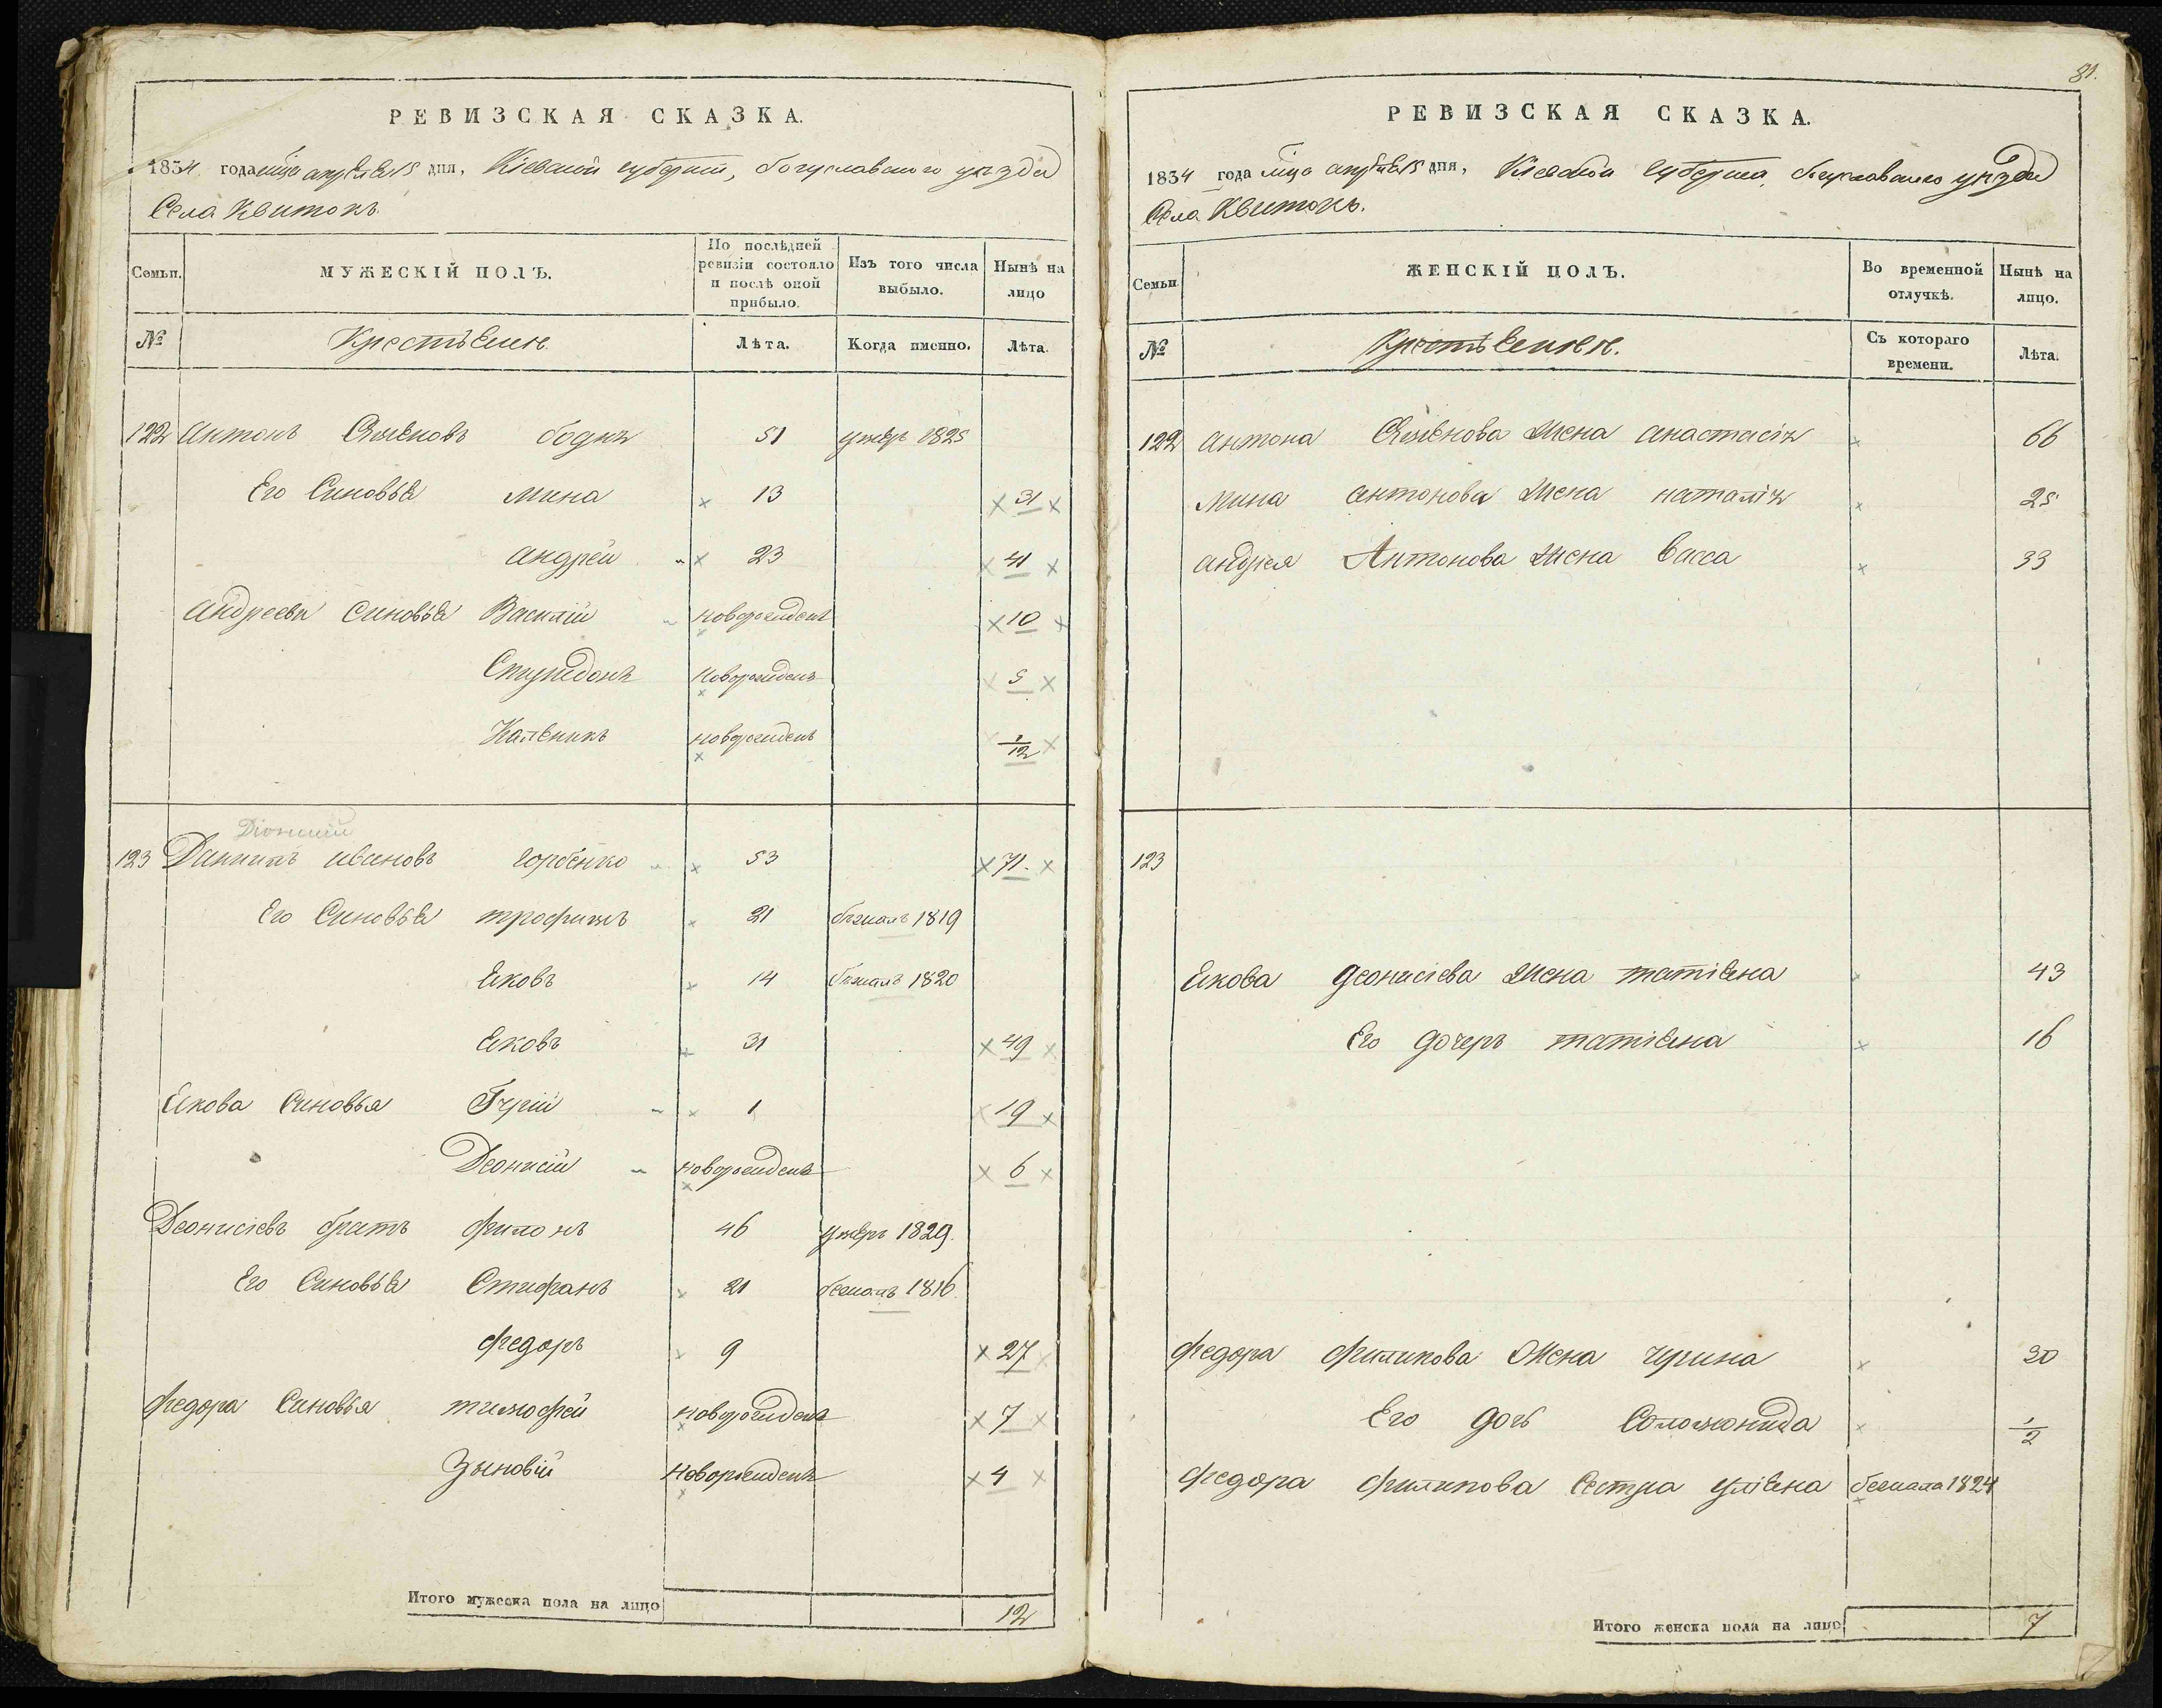 81.
РЕВИЗСКАЯ СКАЗКА.
1834 года мца апреля 15 дня, Кіевской губерніи, богуславского уезда
Села Квитокъ.
Семьи. МУЖЕСКІЙ ПОЛЪ. По послѣдней ревизіи состояло и послѣ оной прибыло. Изъ того числа выбыло. Нынѣ на лицо
№ Крестьяне. Лѣта. Когда именно. Лѣта.
122 антонъ Семеновъ 51 умеръ 1825
Его Синовья мина 13 31
андрей 23 41
андреевы синовья Василий новорожденъ 10
Спиридонъ новорожденъ 5
Каленикъ новорожденъ 1/12
Діонисій
123 Даниилъ ивановъ горбенко 53 71.
Его Синовья трофимъ 21 бежалъ 1819
Яковъ 14 бежалъ 1820
Яковъ 31 49
Якова Синовья Гурій 1 19
Деонисій новорожденъ 6
Деонисіевъ братъ филонъ 46 умеръ 1829.
Его Синовья Стифанъ 21 бежалъ 1816.
федоръ 9 27
федора Синовья тимофей новорожденъ 7
Зыновій новорожденъ 4
Итого мужеска пола на лицо 12
РЕВИЗСКАЯ СКАЗКА.
1834 года мца апреля 15 дня, Кіевской губерніи, богуславского уезда
Села Квитокъ.
Семьи. ЖЕНСКІЙ ПОЛЪ. Во временной отлучкѣ. Нынѣ на лицо.
№ Крестьянки. Съ котораго времени. Лѣта.
122 антона Семенова жена анастасія 66
мина антонова жена наталія 25
андрея Антонова жена Васса 33
123
Якова деонисіева жена татіяна 43
Его дочеръ татіяна 16
федора филипова жена ирина 20
Его дочь Соломонида 1/2
федора филипова Сестра уліяна бежала 1824
Итого женска пола на лицо 7